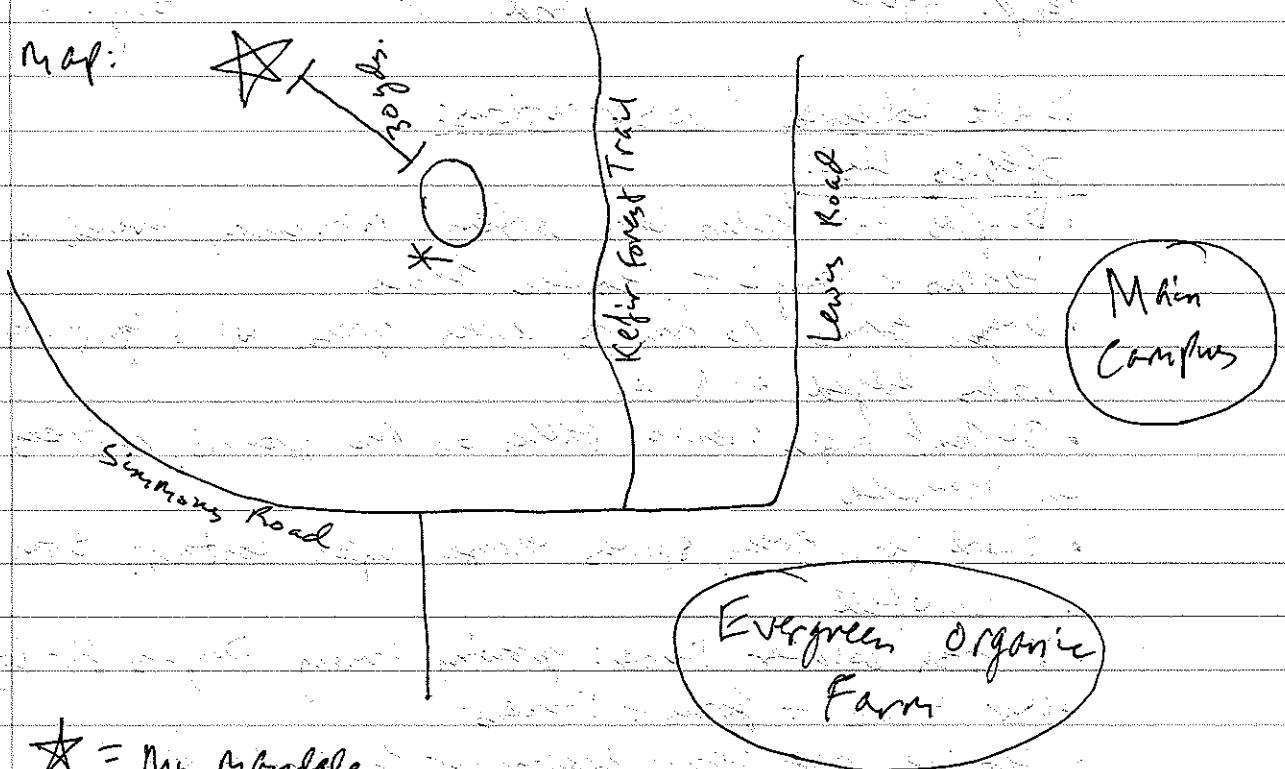 Map:
30 yds.
Kefir Forest Trail
Lewis Road
Main
Campus
Simmons Road
Evergreen Organic
Farm
= My Mandala